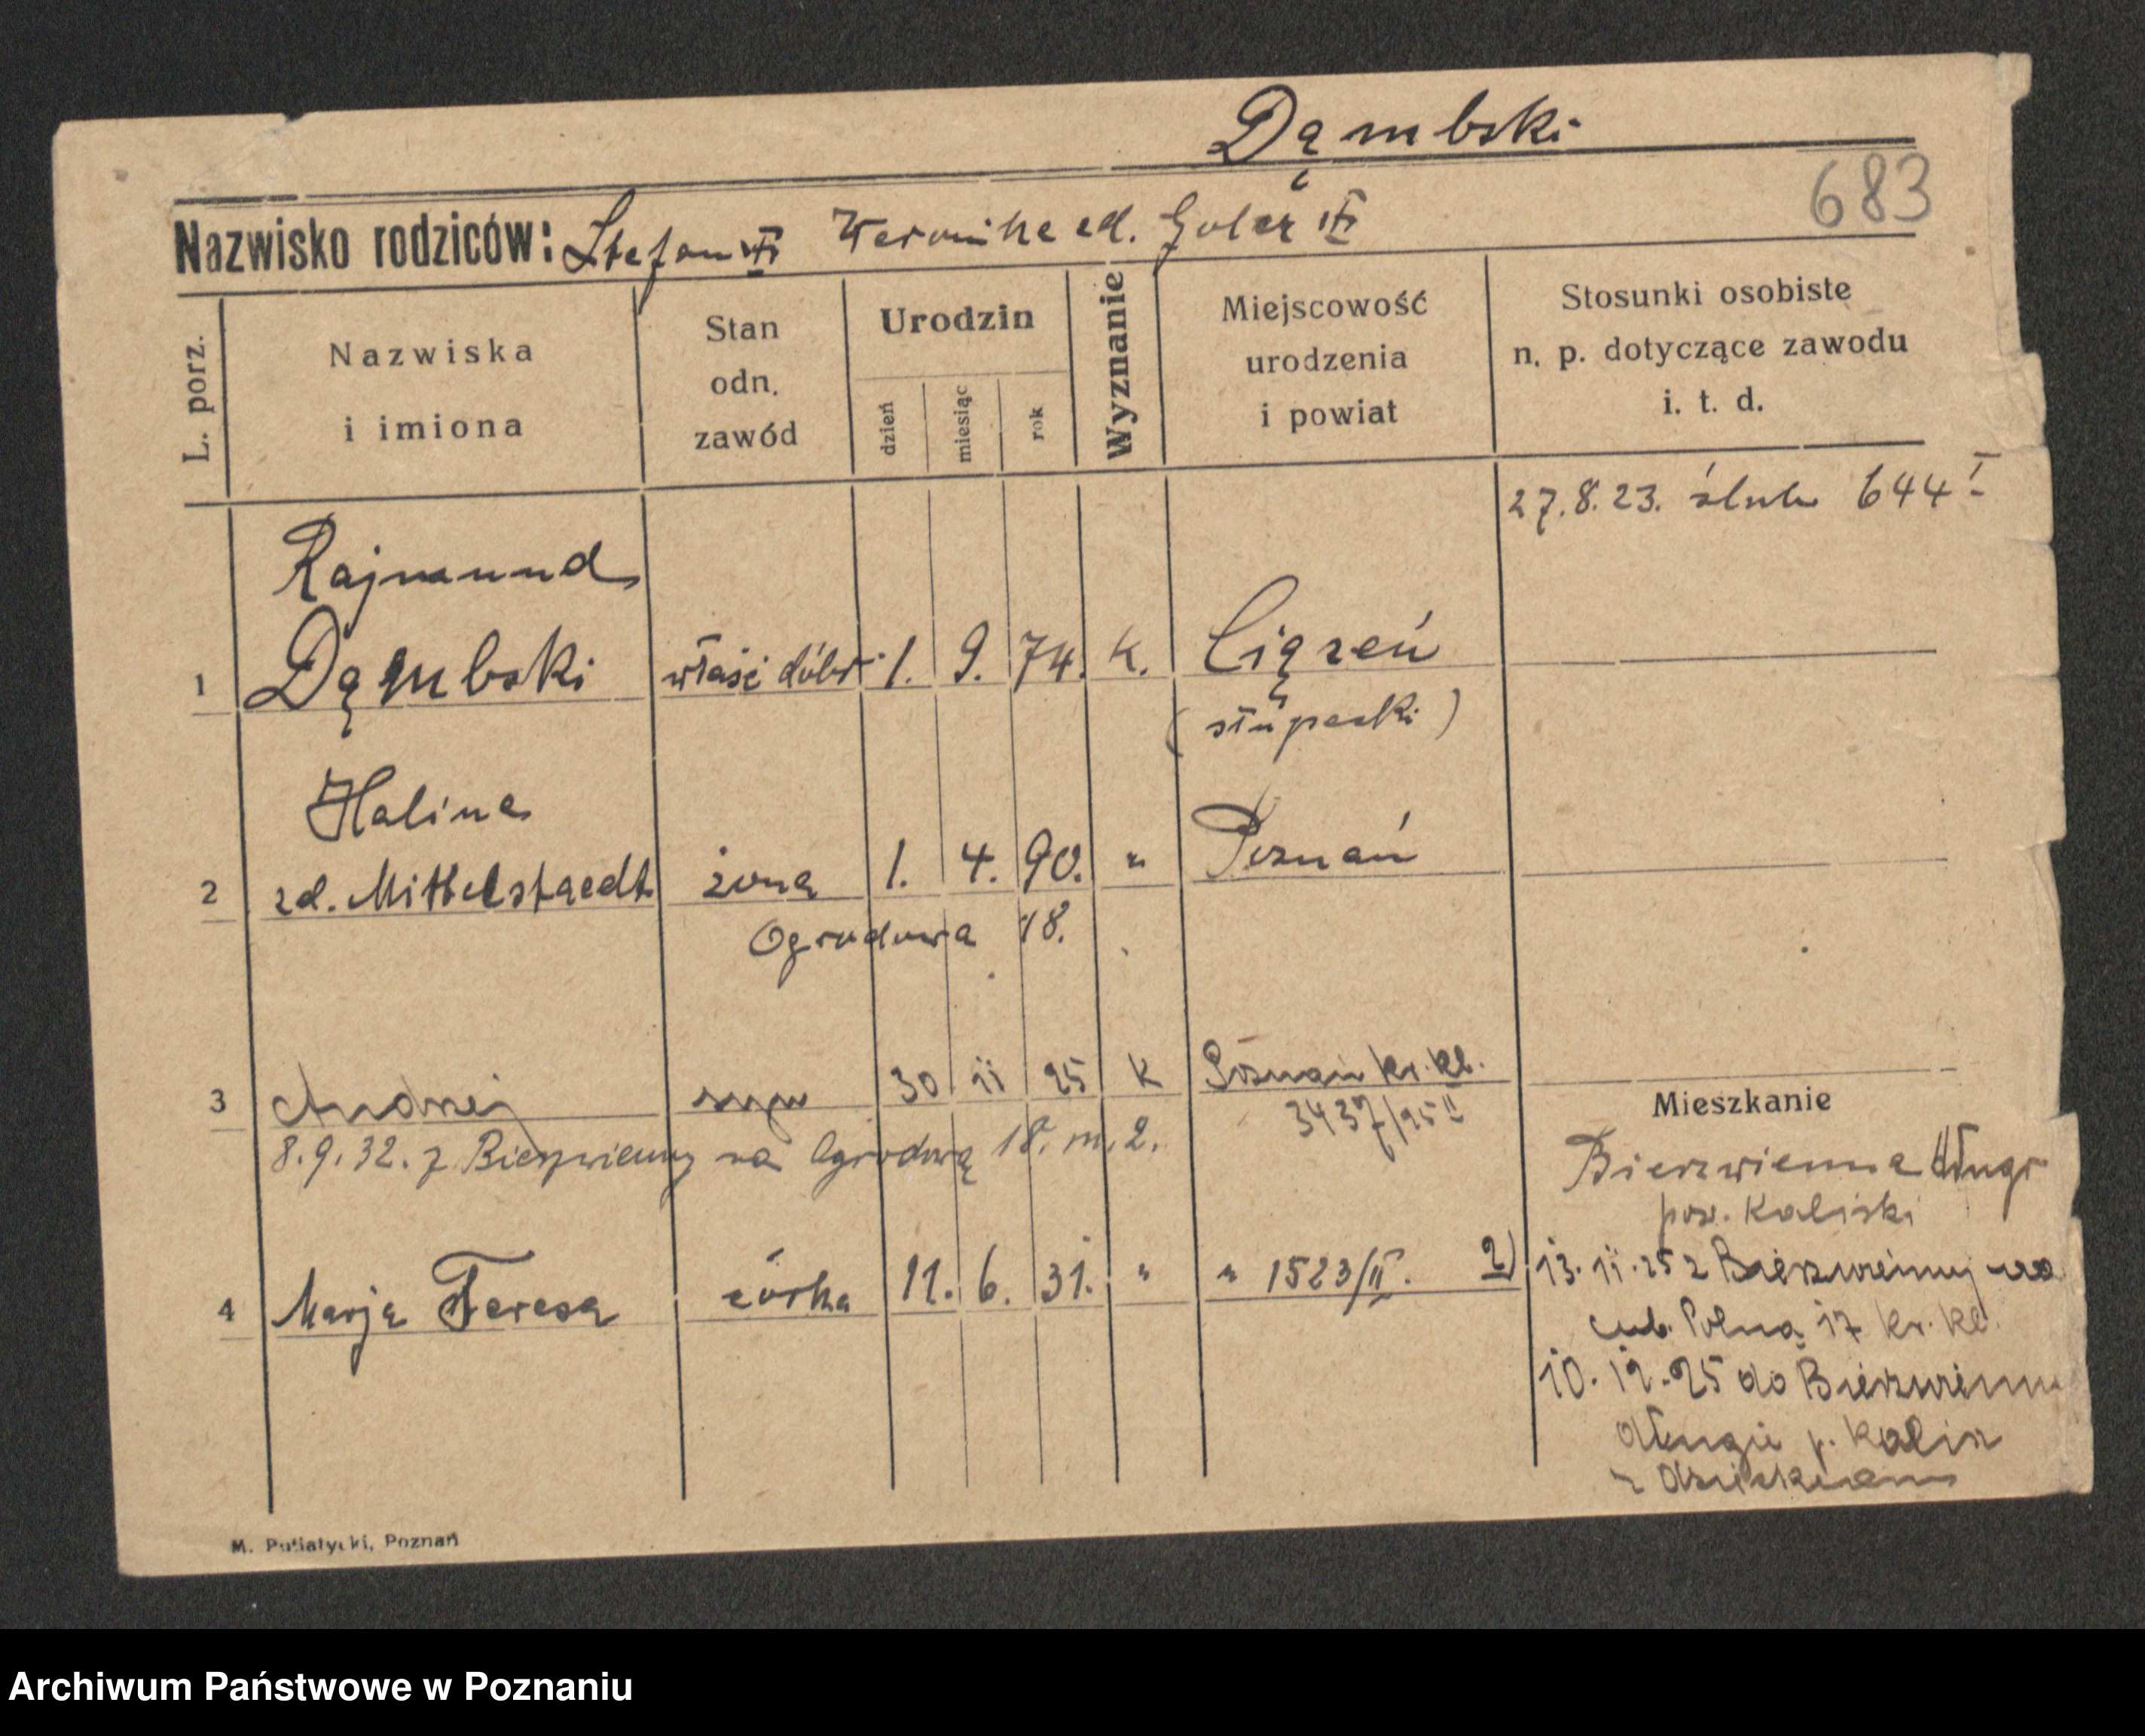 Dąmbski
683
Nazwisko rodziców: Stefan Weronika zd.
L. porz.
Nazwiska i imiona
Stan odn. zawód
Urodzin
dzień
miesiąc
rok
Wyznanie
Miejscowość urodzenia i powiat
Stosunki osobiste n. p. dotyczące zawodu i. t. d.
27.8.23. ślub 644 I
Rajmund
1 Dąmbski właśc dóbr 1. 9. 74. k. Ciązeń
(słupecki)
Halina
2 zd. Mittelstaedt żona 1. 4. 90. " Poznań
Ogrodowa 18.
3 Andrzej syn 30 11 25 k Poznań kr. kl.
3437/25 II
8.9.32. z Bierzwienny na Ogrodową 18. m. 2.
4 Marja Teresa córka 11. 6. 31. " " 1523/II.
Mieszkanie
Bierzwienna długa
pow. Kaliski
2) 13.11.25 z Bierzwiennej na
Polna 17 kr. kl.
10.12.25 do
długie p. Kalisz
z dzieckiem
M. Putiatycki, Poznań
Archiwum Państwowe w Poznaniu